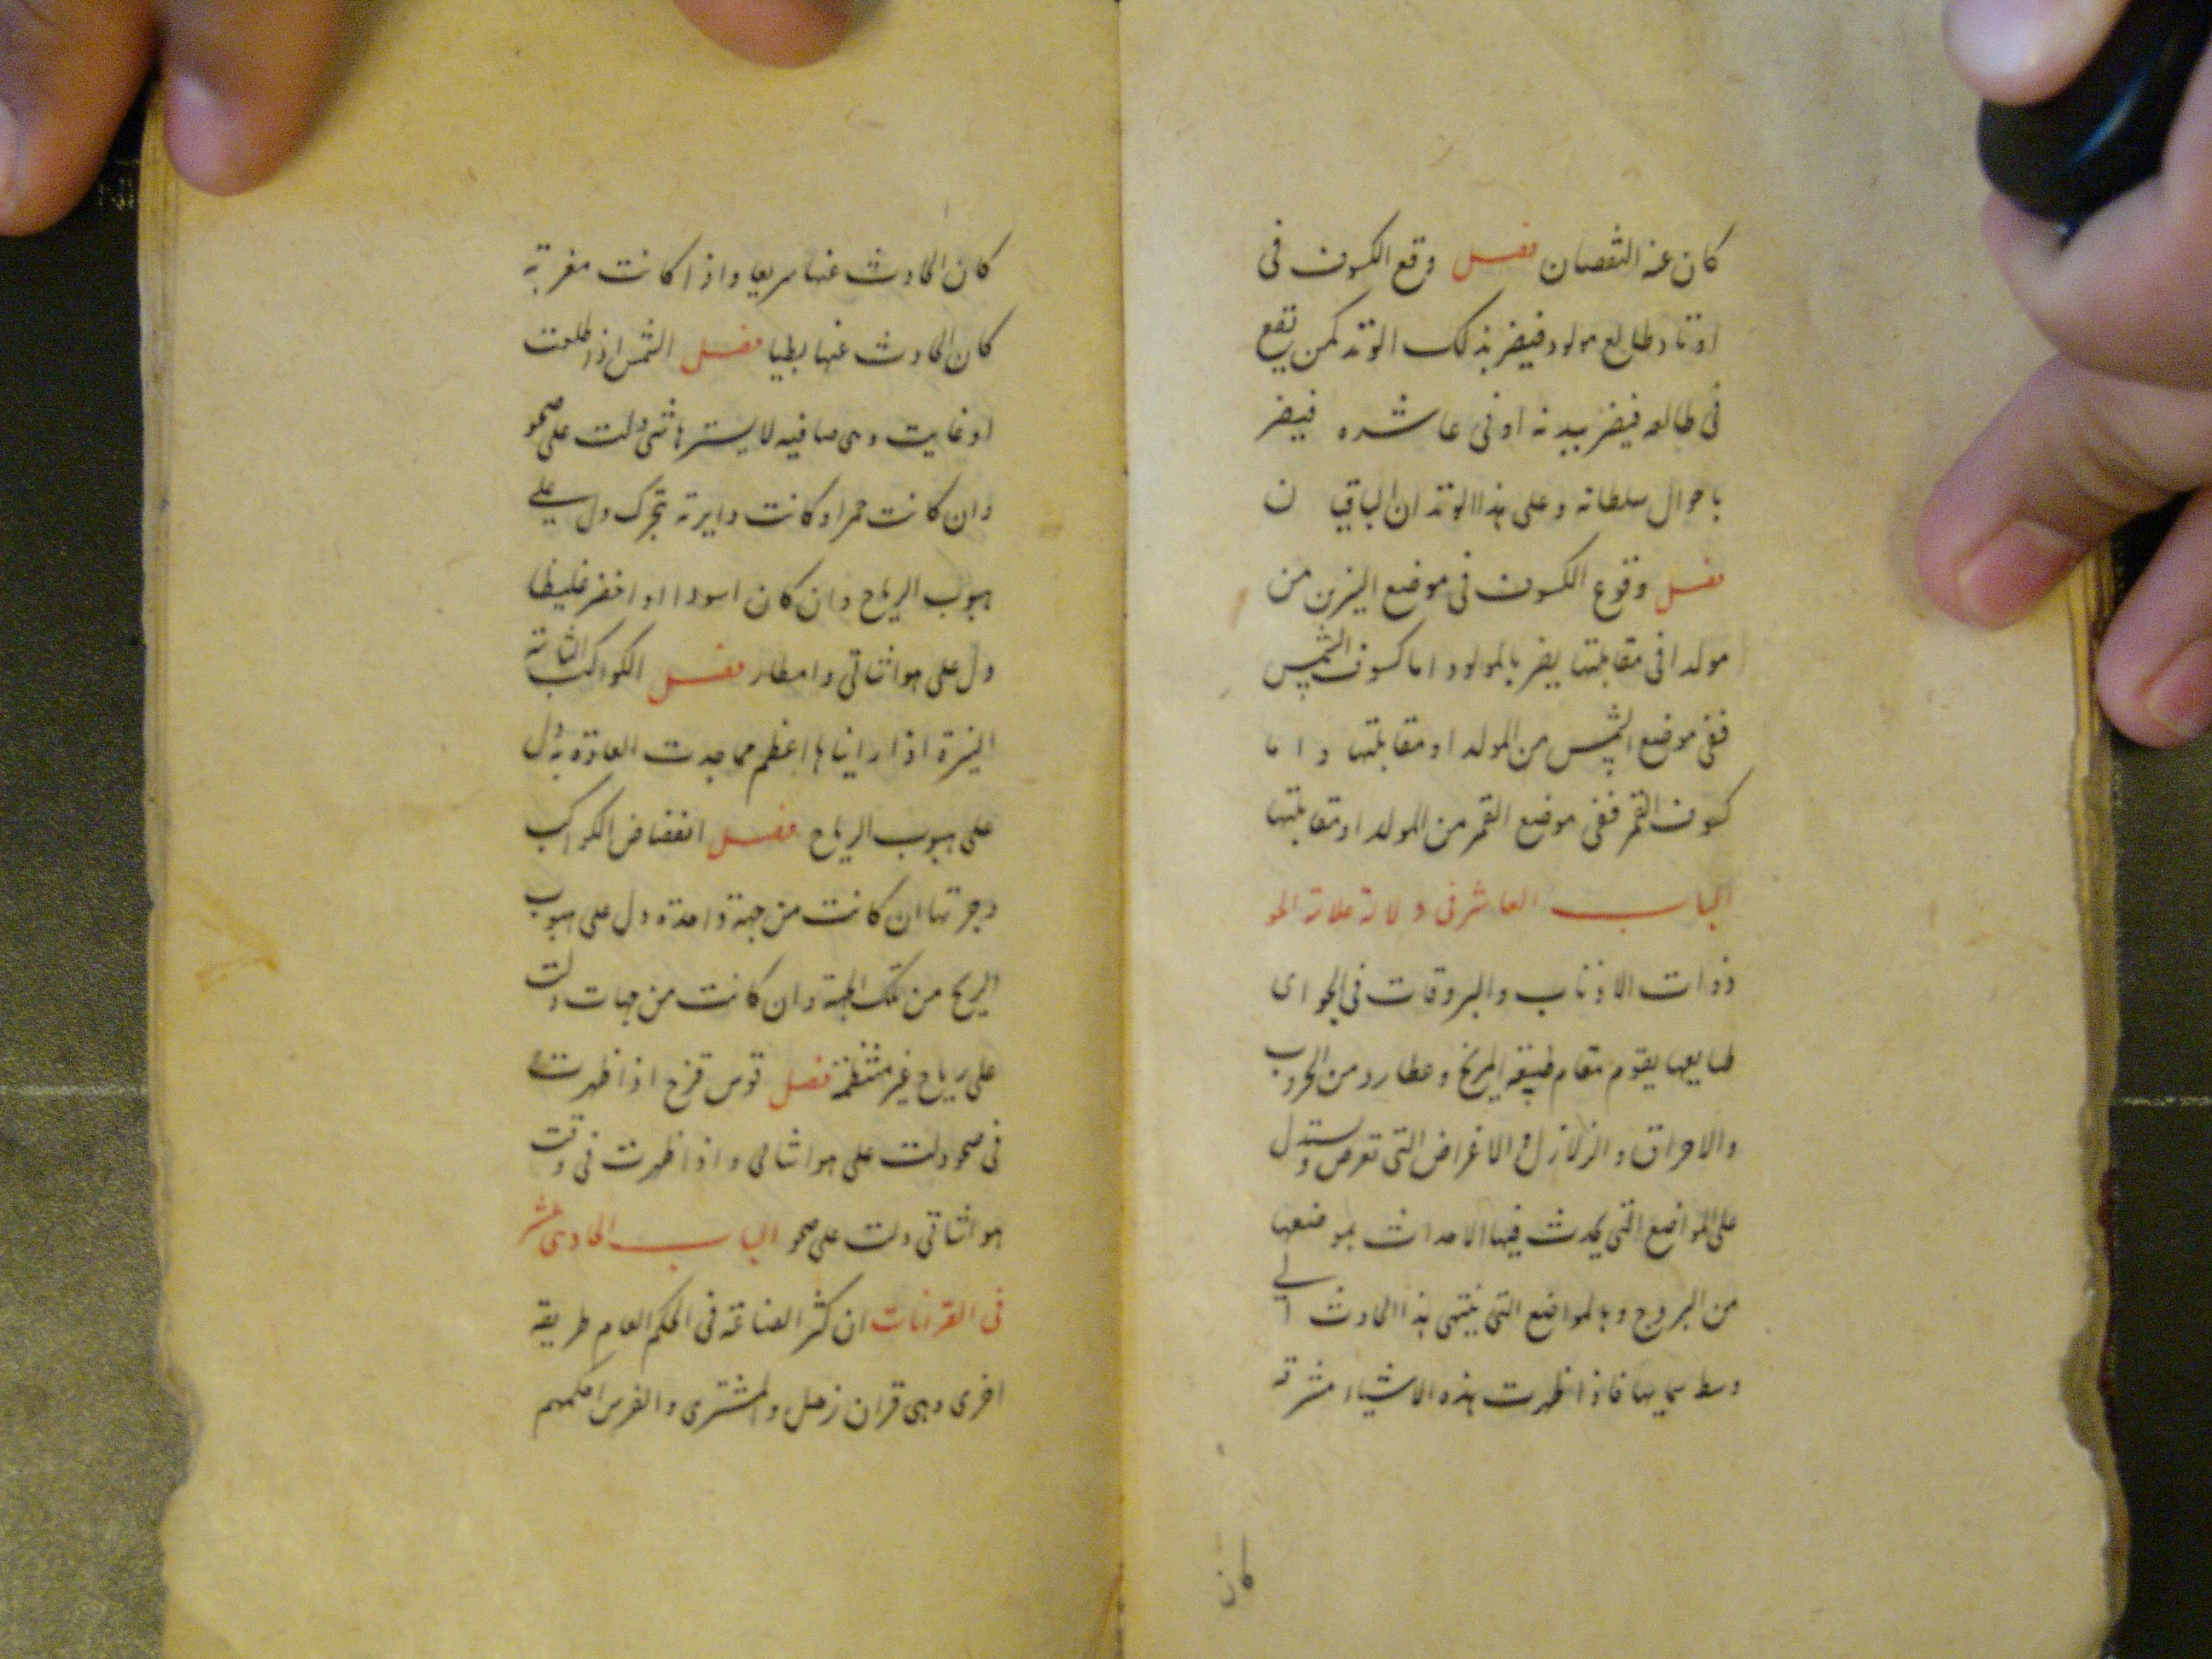 كان عنه النقصان فصل وقع الكسوف فى
اوتاد طالع مولود فيضر بذلك الوتد كمن يقع
فى طالعه فيضر ببدنه او فى عاشره فيضر
باحوال سلطانه وعلى هذا الوتد ان الباقي ن
فصل وقوع الكسوف فى موضع النيرين من
مولد افى مقابلتها يضر بالمولود اما كسوف الشمس
ففى موضع الشمس من المولد او مقابلتها و اما
كسوف القمر ففى موضع القمر من المولد او مقابلتها
الباب العاشر فى دلالة علامة الجو
ذوات الاذناب والبروقات فى الجو اى
طبايعها يقوم مقام طبيعة المريخ وعطارد من الحروب
والاحراق والزلازل والاغراض التى تعرض ويستدل
على المواضع التى يحدث فيها الاحداث بموضعها
من البروج وبالمواضع التى ينتهى هذا الحادث الى
وسط سمايها فاذا ظهرت هذه الاشياء مشرقه
كان
كان الحادث عنها سريعا واذا كانت مغربة
كان الحادث عنها بطيا فصل الشمس اذا طلعت
او غابت وهى صافيه لا يسترها شى دلت على صحو
وان كانت حمرا وكانت دايرته تتحرك دل على
هبوب الرياح وان كان اسودا او اخضر غليظا
دل على هوا شاتى وامطار فصل الكواكب الثابتة
النيرة اذا رايناها اعظم مما جدت العادة به دل
على هبوب الرياح فصل انقضاض الكواكب
وجرتها ان كانت من جهة واحدة دل على هبوب
الريح من تلك الجهة وان كانت من جهات دلت
على رياح غير منتظمة فصل قوس قزح اذا ظهرت
فى صحو دلت على هوا شاتى واذا ظهرت فى وقت
هوا شاتى دلت على صحو الباب الحادى عشر
فى القرنات ان كثر الصناعة فى الحكم العام طريقه
اخرى وهى قران زحل والمشترى والفرس احكمهم